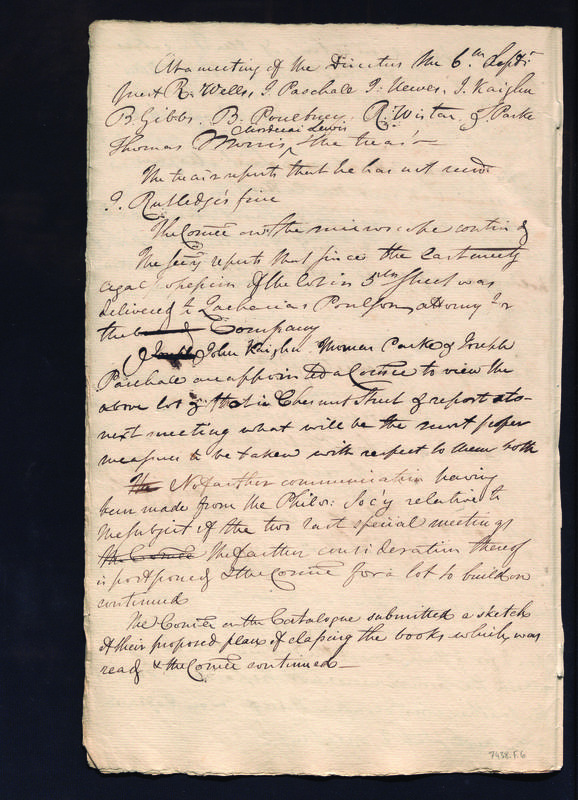 At a meeting of the Directors the 6th Septr
Prest R. Wells, J Paschall J: Hewes, J. Kaighn
B Gibbs, B. Poultney, R: Wistar, & Parke
Mordecai Lewis
Thomas Morris, & the treasr
The treasr reports that he has not recd
J. Rutledge's fine
The Comee on the microscope contind
The Secy reports that since the last meetg
legal possession of the lot in 5th Street was
delivered to Zacharias Poulson, attorny for
the Company
Joseph John Kaighn Thomas Parke & Joseph
Paschall are appointed a Comee to view the
above lot & that in Chesnut Street & report at o
next meeting what will be the most proper
measures to be taken with respect to them both
The No farther communication having
been made from the Philos: Socy relative to
the subject of the two last special meetings
the Comee The farther consideration thereof
is postponed & the Comee for a lot to build on
continued
The Comee on the Catalogue submitted a sketch
of their proposed plan of classing the books which was
read & the Comee continued—
7438.F.6